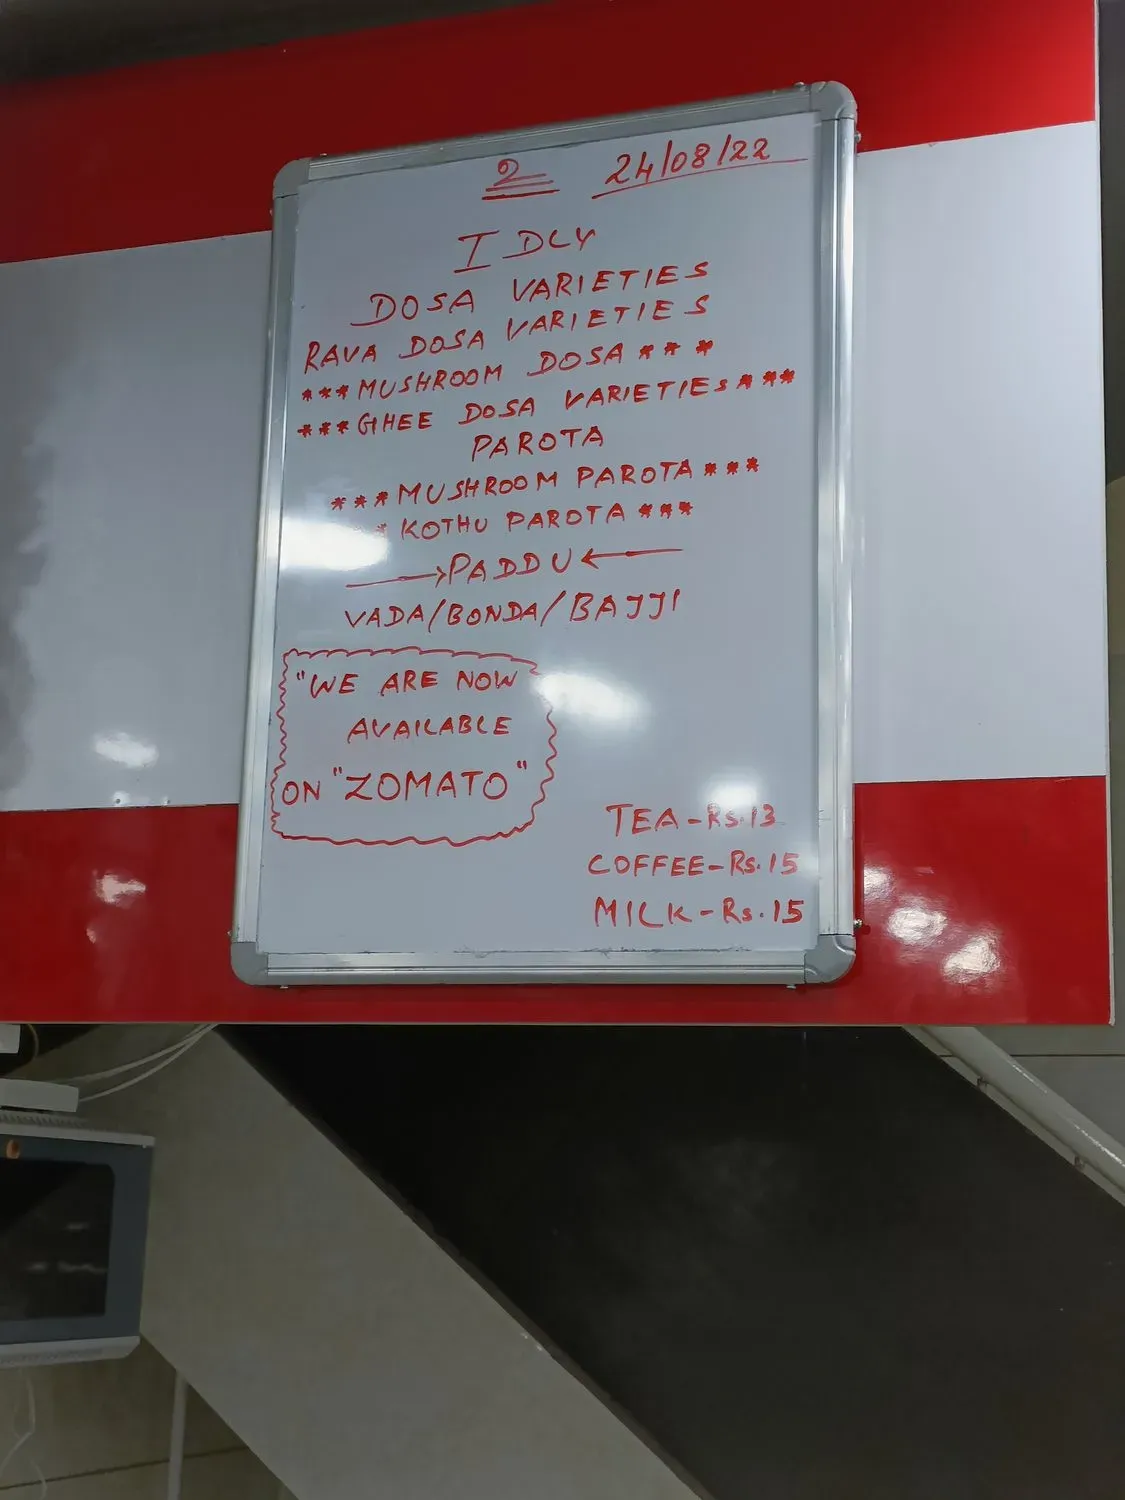 2 24/08/22
IDLY
DOSA VARIETIES
RAVA DOSA VARIETIES
***MUSHROOM DOSA***
***GHEE DOSA VARIETIES***
PAROTA
***MUSHROOM PAROTA***
*KOTHU PAROTA***
→PADDU←
VADA/BONDA/BAJJI
"WE ARE NOW
AVAILABLE
ON "ZOMATO"
TEA-Rs.13
COFFEE-Rs.15
MILK-Rs.15